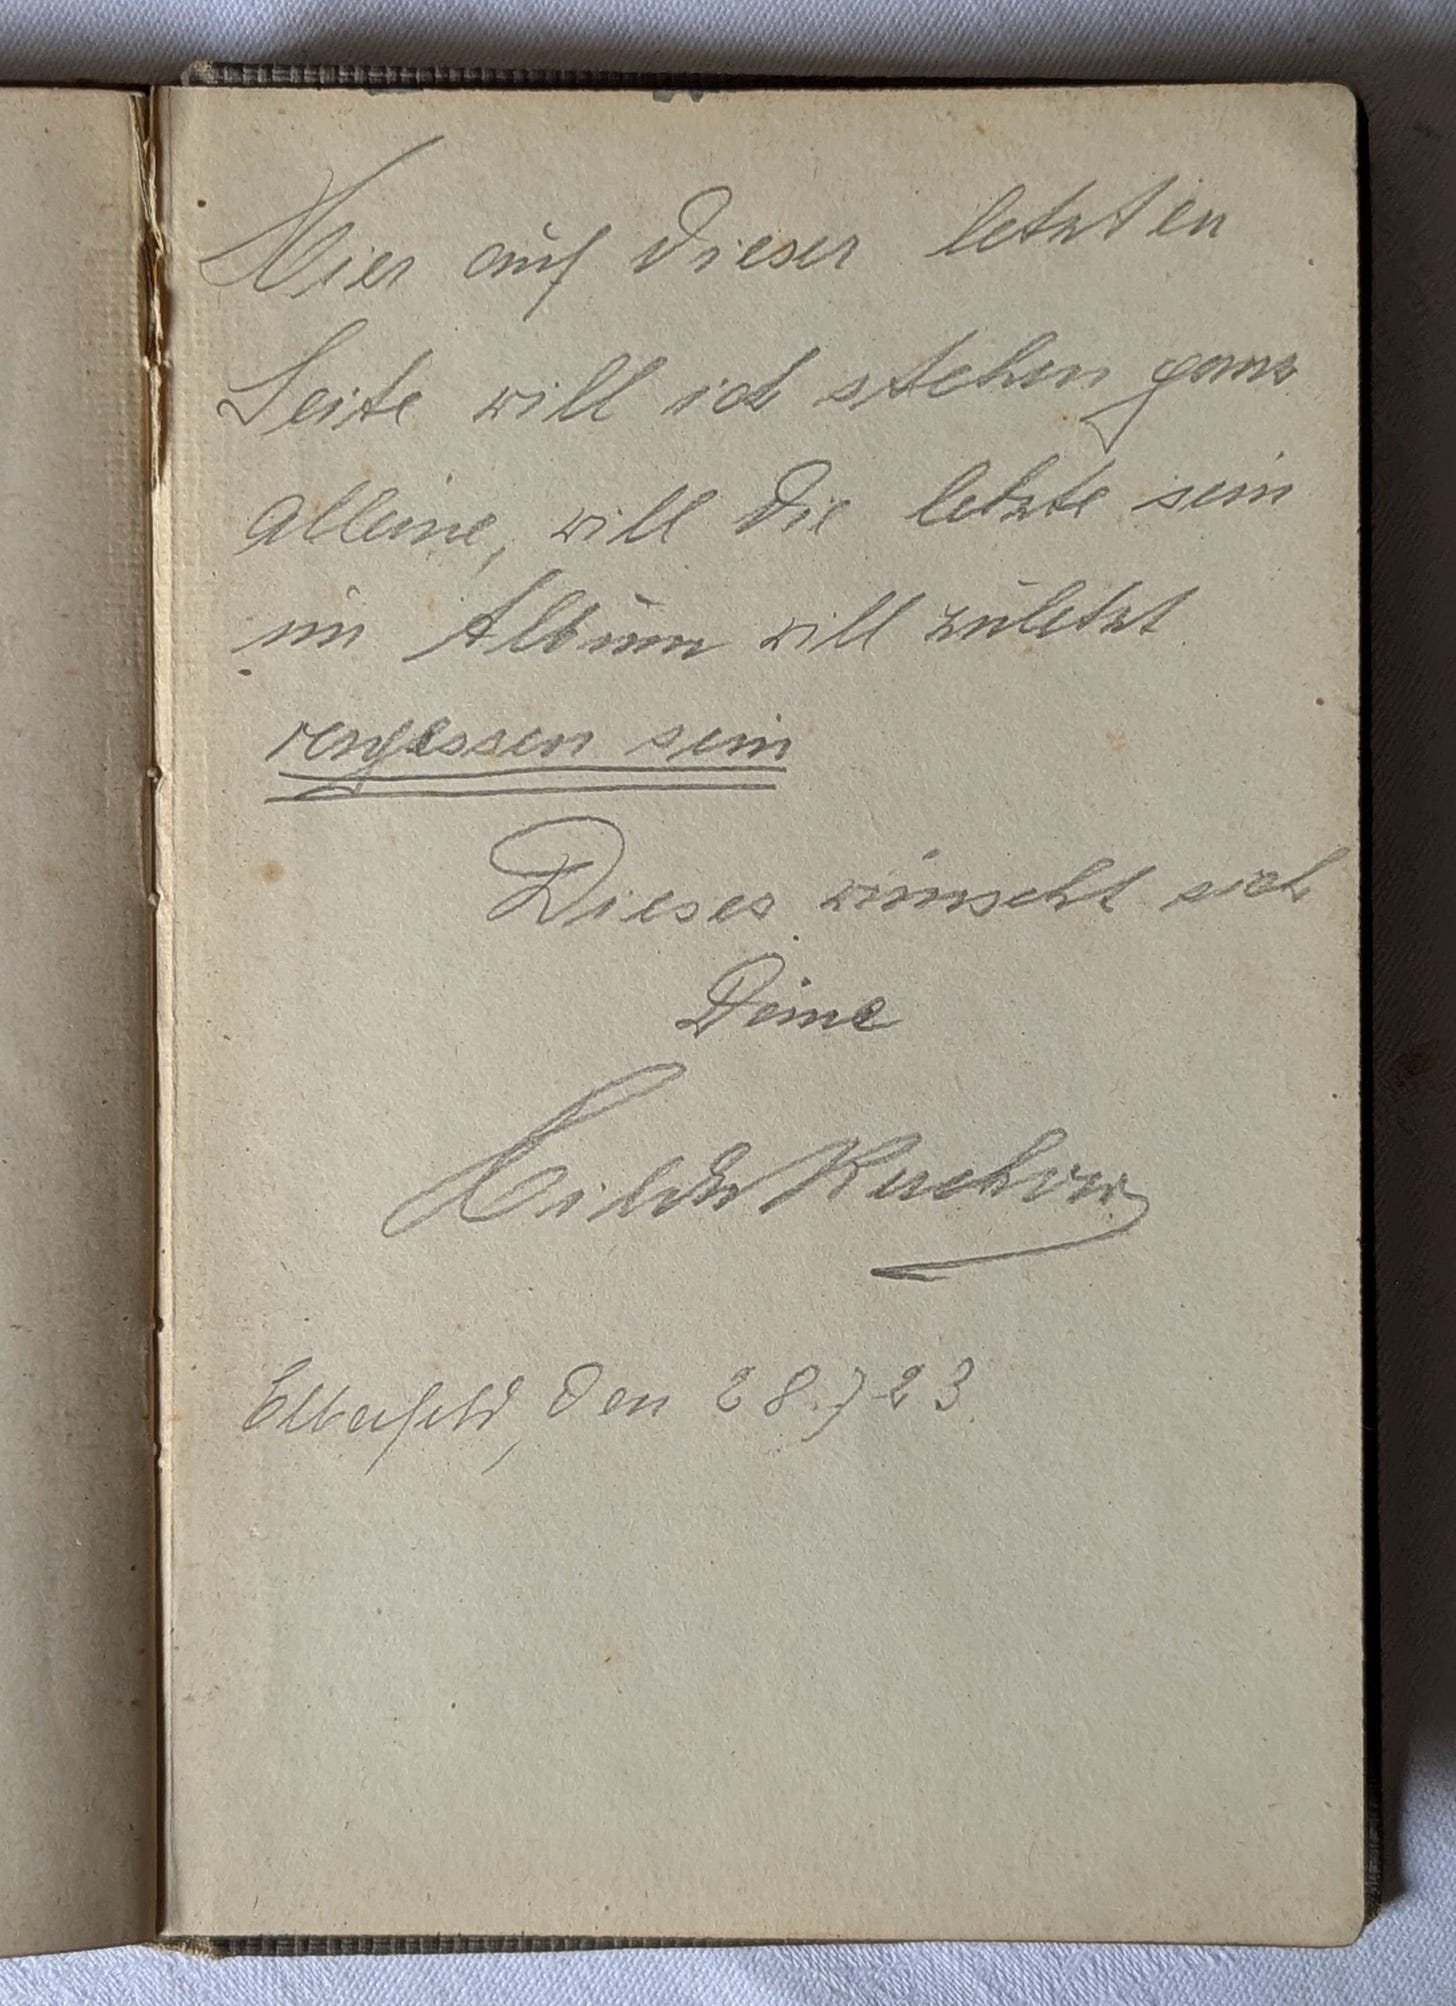 Hier auf dieser letzten
Seite will ich stehen ganz
alleine, will die letzte sein
im Album will zuletzt
vergessen sein
Dieses wünscht sich
Deine
Hilde
Elberfeld, den 28.7.23.